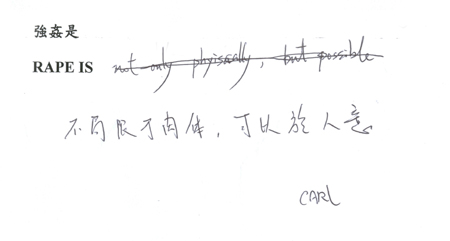 強姦是
RAPE IS not only phyisically, but possible
不局限于肉体，可以於人意
CARL